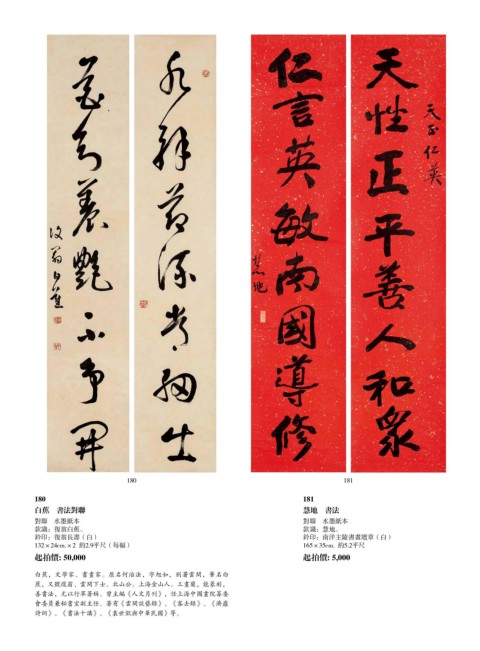 水解 常細出
花知養艷不爭開
復翁白蕉
天性正平善人和眾
天正仁英
仁言英敏南國導修
慧地
180
181
180
白蕉 書法對聯
對聯 水墨紙本
款識:復翁白蕉。
鈐印:復翁長壽(白)
132×24cm. ×2 約2.9平尺(每幅)
起拍價: 50,000
白蕉,文學家、書畫家。原名何治法,字旭如,別署雲間,筆名白
蕉,又號復翁、雲間下士、北山公。上海金山人。工畫蘭,能篆刻,
善書法,尤以行草著稱。曾主編《人文月刊》,任上海中國畫院籌委
會委員兼秘書室副主任。著有《雲間談藝錄》、《客去錄》、《濟廬
詩詞》、《書法十講》、《袁世凱與中華民國》等。
181
慧地 書法
對聯 水墨紙本
款識:慧地。
鈐印:南洋主陵書畫題章(白)
165×35cm. 約5.2平尺
起拍價: 5,000